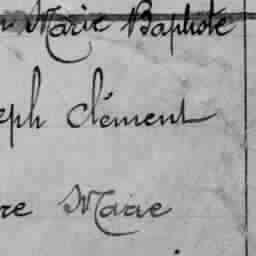 Marie Baptiste
eph Clément
re Marie